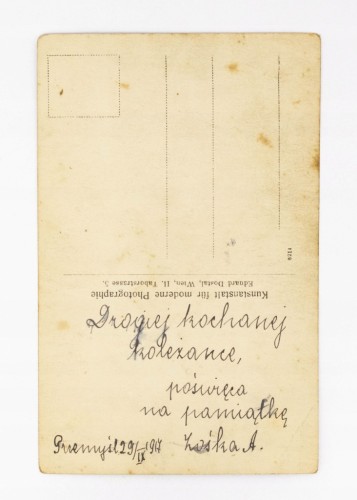 Drogiej kochanej
koleżance,
poświęca
na pamiątkę
Przemyśl 29/IV 917 Zośka A.
Kunstanstalt für moderne Photographie
Eduard Dostal, Wien, II. Taborstrasse 5.